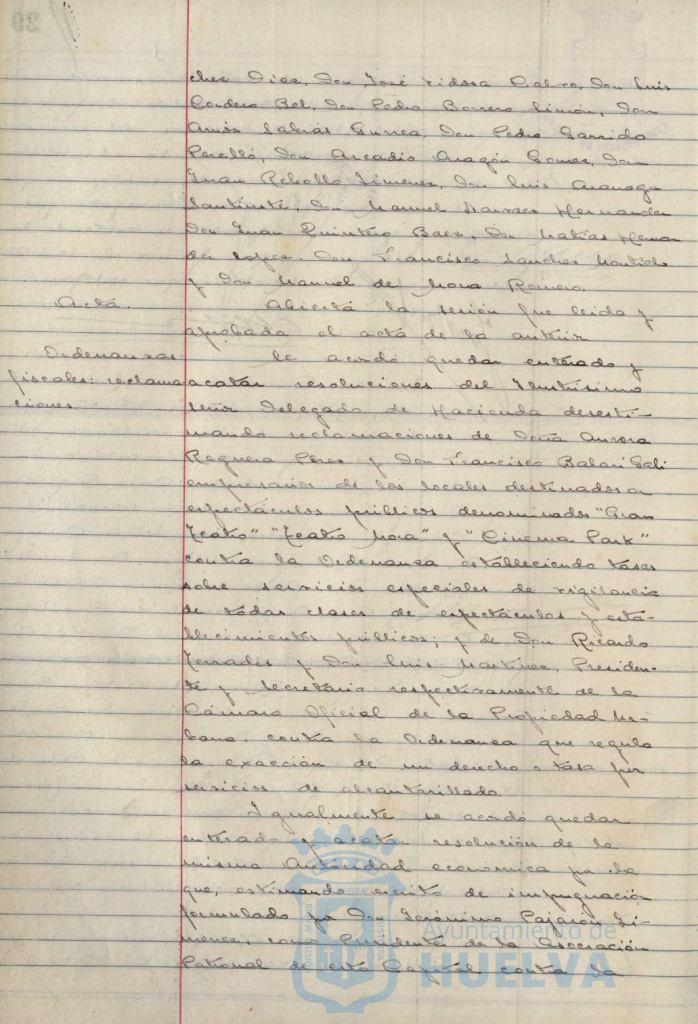 chez Diez, Don José Tidosa Calvo, Don Luis
Cordero Bel, Don Pedro Borrero Limón, Don
Amós Sabrás Gurrea, Don Pedro Garrido
Perelló, Don Arcadio Aragón Gomez, Don
Juan Rebollo Jimenez, Don Luis
Don Manuel Narvaez Hernandez
Don Juan Quintero Baez, Don Matías Hernan
dez Lopez, Don Francisco Sanchez
y Don Manuel de Mora Romero.
Acta.
Abierta la sesión fue leida y
aprobada el acta de la anterior
Ordenanzas
fiscales: reclama
ciones.
Se acordó quedar enterado y
acatar resoluciones del Ilustrísimo
Señor Delegado de Hacienda desesti-
mando reclamaciones de Doña Aurora
Reguera Perez y Don Francisco Balari Gali
empresarios de los locales destinados a
espectáculos públicos denominados "Gran
Teatro" "Teatro Mora" y "Cinema Park"
contra la Ordenanza estableciendo tasas
sobre servicios especiales de vigilancia
de todas clases de espectáculos y esta-
blecimientos públicos; y de Don Ricardo
Terrades y Don Luis Martinez, Presiden-
te y Secretario respectivamente de la
Cámara Oficial de la Propiedad Ur-
bana. contra la Ordenanza que regula
la exacción de un derecho o tasa por
servicios de alcantarillado.
Igualmente se acordó quedar
enterado y acatar resolución de la
misma Autoridad económica por la
que, estimando escrito de impugnación
formulado por Don Jerónimo Pajarón Ji-
menez, como Presidente de la Asociación
Patronal de esta Capital contra la
Ayuntamiento de
HUELVA